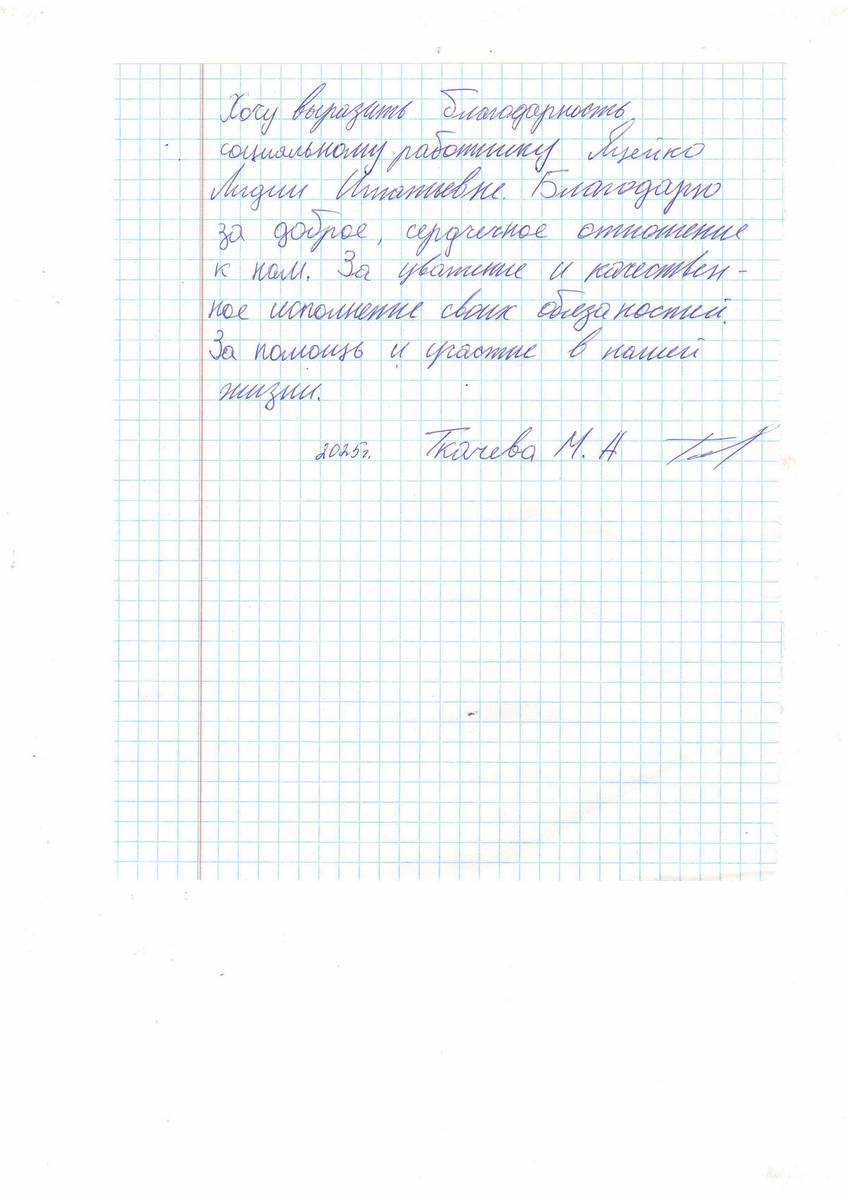 Хочу выразить благодарность
социальному работнику Яцейко
Лидии Игнатьевне. Благодарю
за доброе, сердечное отношение
к нам. За уважение и качествен-
ное исполнение своих обязаностей.
За помощь и участие в нашей
жизни.
2025г. Ткачева М. А